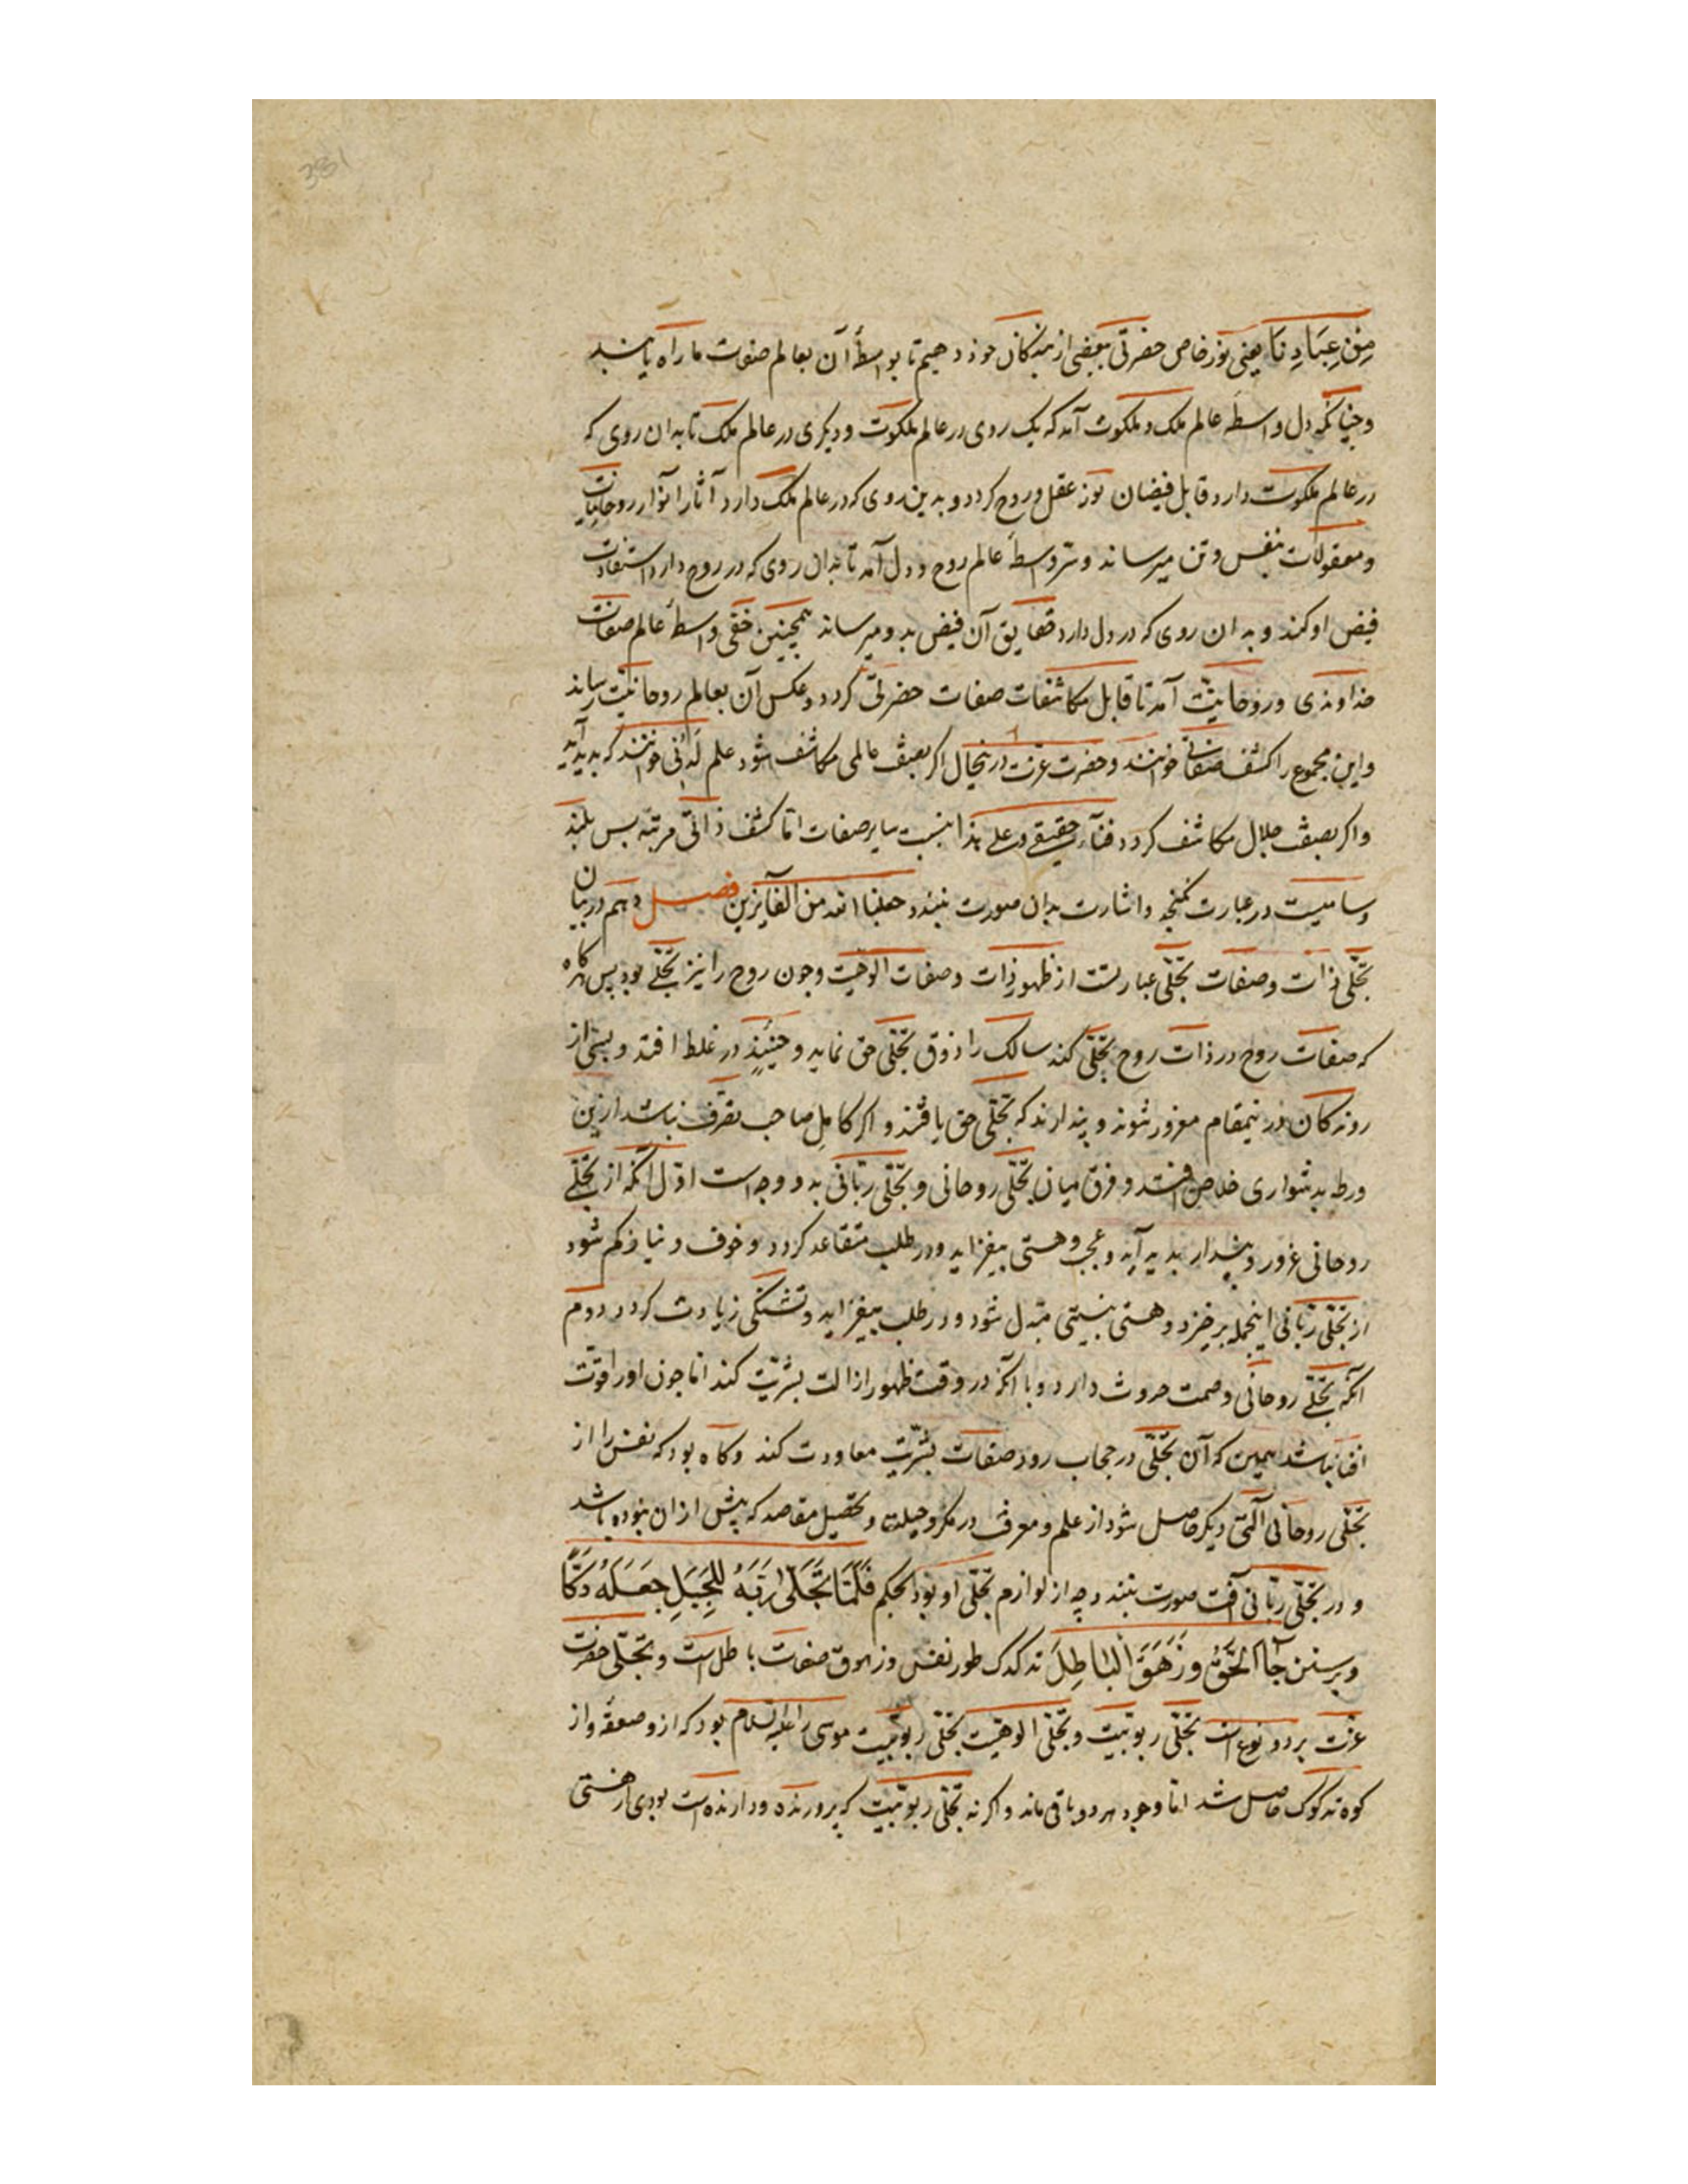 381
مِنْ عِبَادِنَا یعنی نور خاص حضرتی ببعضی از بندکان خود دهیم تا بواسطۀ آن بعالم صفات ما راه یابند
و چنانکه دل واسطۀ عالم ملک و ملکوت آمد که یک روی در عالم ملکوت و دیکری در عالم ملک تا بدان روی که
در عالم ملکوت دارد قابل فیضان نور عقل و روح کردد و بدین روی که در عالم ملک دارد آثار انوار روحانیات
و معقولات بنفس و تن میرساند و سرّ واسطۀ عالم روح و دل آمد تا بدان روی که در روح دارد استفادت
فیض او کند و بدان روی که در دل دارد حقایق آن فیض بدو میرساند همچنین خفی واسطۀ عالم صفات
خداوندی و روحانیت آمد تا قابل مکاشفات صفات حضرتی کردد و عکس آن بعالم روحانیّت رساند
و این مجموع را کشف صفاتی خوانند و حضرت عزت درینحال اکر بصفت عالمی مکاشف شود علم لدنّی خوانند که پدید آید
و اکر بصفت جلال مکاشف کردد فناء حقیقی و علی هذا بنسبت سایر صفات امّا کشف ذاتی مرتبۀ بس بلند
و سامیست در عبارت نکنجد و اشارت بدان صورت نبندد جعلنا الله من الفآیزین فصل دهم در بیان
تجلّی ذات و صفات تجلّی عبارتست از ظهور ذات و صفات الوهیّت و چون روح را نیز تجلّی بود پس کاه
که صفات روح در ذات روح تجلّی کند سالک را ذوق تجلّی حق نماید و حینئذٍ در غلط افتد و بسی از
روندکان درینمقام مغرور شوند و پندارند که تجلّی حق یافتند و اکر کاملِ صاحب تصرّف نباشد ازین
ورطه بدشواری خلاص افتد و فرق میان تجلّی روحانی و تجلّی ربّانی به دو وجه است اوّل آنکه از تجلّی
روحانی غرور و پندار پدید آید و عجب و هستی بیفزاید و در طلب متقاعد کردد و خوف و نیاز کم شود
از تجلّی ربّانی اینجمله برخیزد و هستی بنیستی مبدل شود و در طلب بیفزاید و تشنکی زیادت کردد دوم
آنکه تجلّی روحانی وصمت حدوث دارد و با آنکه در وقت ظهور ازالت بشریّت کند اما چون او را قوّت
افنا نباشد همین که آن تجلّی در حجاب رود صفات بشریّت معاودت کند و کاه بود که نفس را از
تجلّی روحانی آلتی دیکر حاصل شود از علم و معرفت در مکر و حیلت و تحصیل مقاصد که پیش ازان نبوده باشد
و در تجلّی ربّانی آفت صورت نبندد چه از لوازم تجلّی او بود بحکم فَلَمَّا تَجَلّی رَبُّهُ لِلجَبَلِ جَعَلَهُ دَکّاً
و بر سنن جآء الحَقُّ و زَهَقَ الْبَاطِلَ تدکدک طور نفس و زهوق صفات باطل است و تجلّی حضرت
عزّت بر دو نوع است تجلّی ربوبیّت و تجلّی الوهیّت تجلّی ربوبیّت موسی را علیه السلام بود که ازو صعقه و از
کوه تدکدک حاصل شد امّا وجود هر دو باقی ماند و اکر نه تجلّی ربوبیّت که پرورنده و دارنده است بودی از هستی